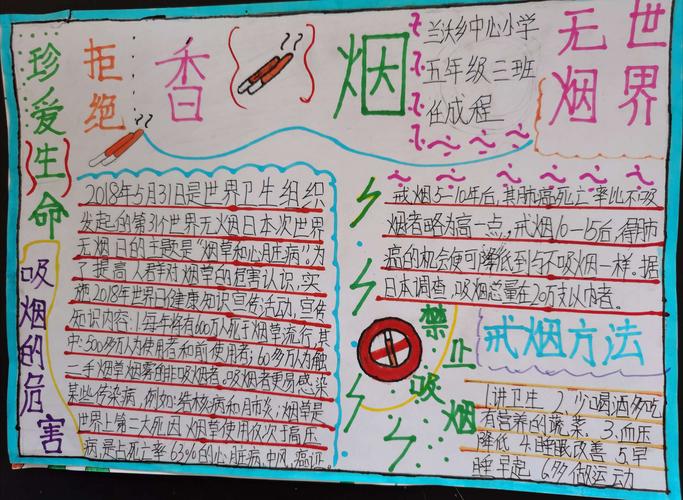 珍爱生命
拒绝
香烟
兰沃乡中心小学
五年级三班
任成程
无烟世界
吸烟的危害
2018年5月31日是世界卫生组织
发起的第31个世界无烟日本次世界
无烟日的主题是“烟草和心脏病”为
了提高人群对烟草的危害认识,实
施2018年世界日健康知识宣传活动,宣传
知识内容:1.每年将有600万人死于烟草流行,其
中:500多万人为使用者和前使用者;60多万人为触
二手烟草烟雾的非吸烟者。吸烟者更易感染
某些传染病,例如:结核病和肺炎;烟草是
世界上第二大死因 烟草使用仅次于高压
病,是占死亡率63%的心脏病,中风,癌证。
戒烟5-10年后,其肺癌死亡率比不吸
烟者略为高一点。戒烟10-15后,得肺
癌的机会便可降低到与不吸烟一样。据
日本调查,吸烟总量在20万支以内者。
禁止吸烟
戒烟方法
1.讲卫生 2.少喝酒多吃
有营养的蔬菜。3.血压
降低 4.睡眠改善 5.早
睡早起 6.多做运动